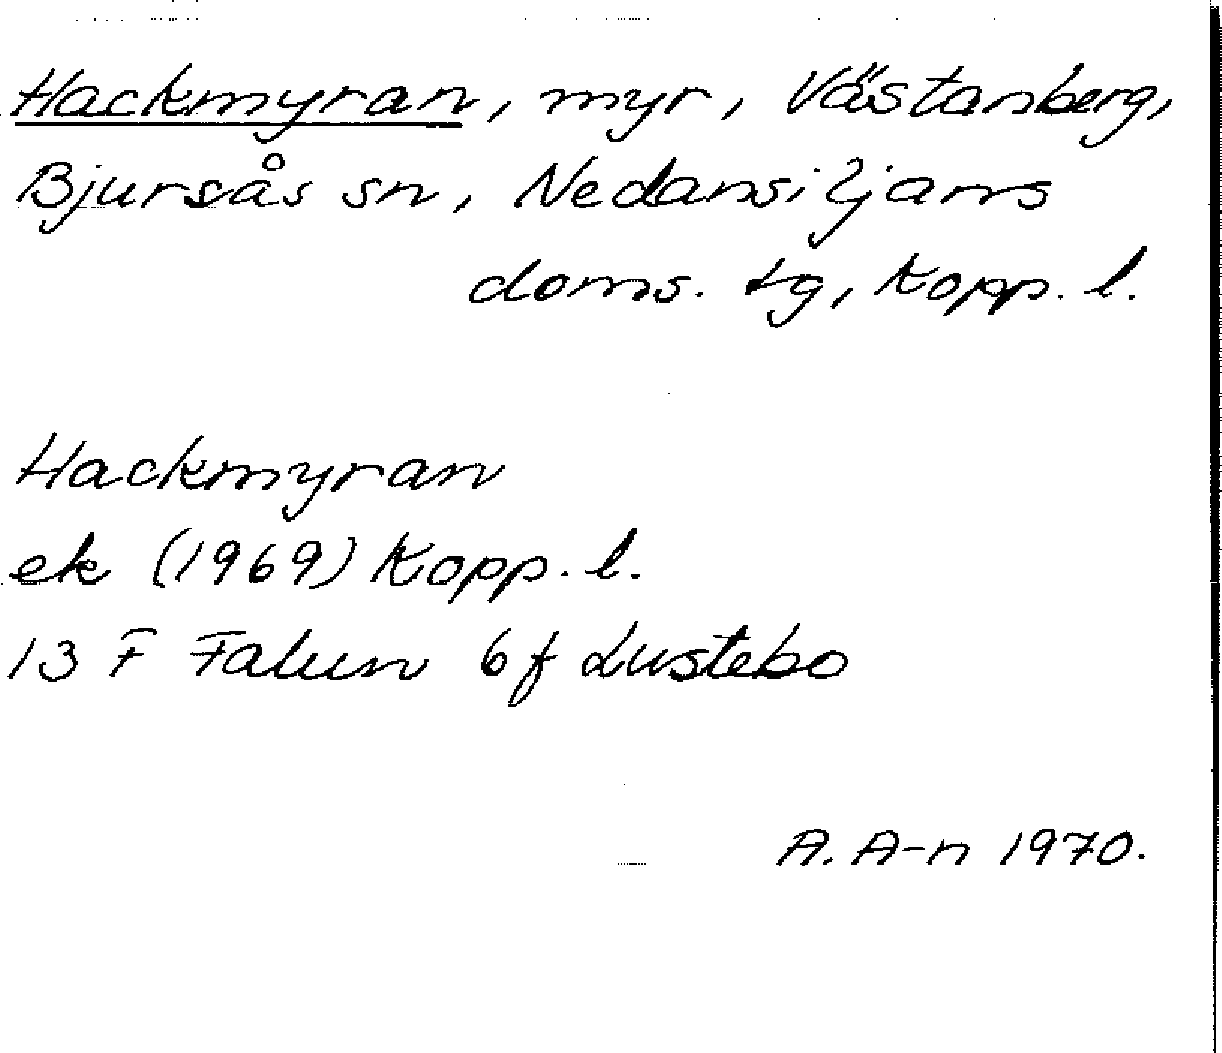 Hackmyran, myr, Västanberg,
Bjursås sn, Nedansiljans
doms. tg, Kopp. l.
Hackmyran
ek (1969) Kopp. l.
13 F Falun 6f Lustebo
A. A-n 1970.